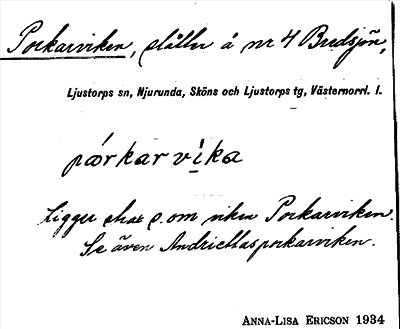 Porkarviken, slåtter å nr 4 Bredsjön,
Ljustorps sn, Njurunda, Sköns och Ljustorps tg, Västernorrl. l.
pórkarvìka
Ligger strax s. om viken Porkarviken.
Se även Andriettasporkarviken.
ANNA-LISA ERICSON 1934